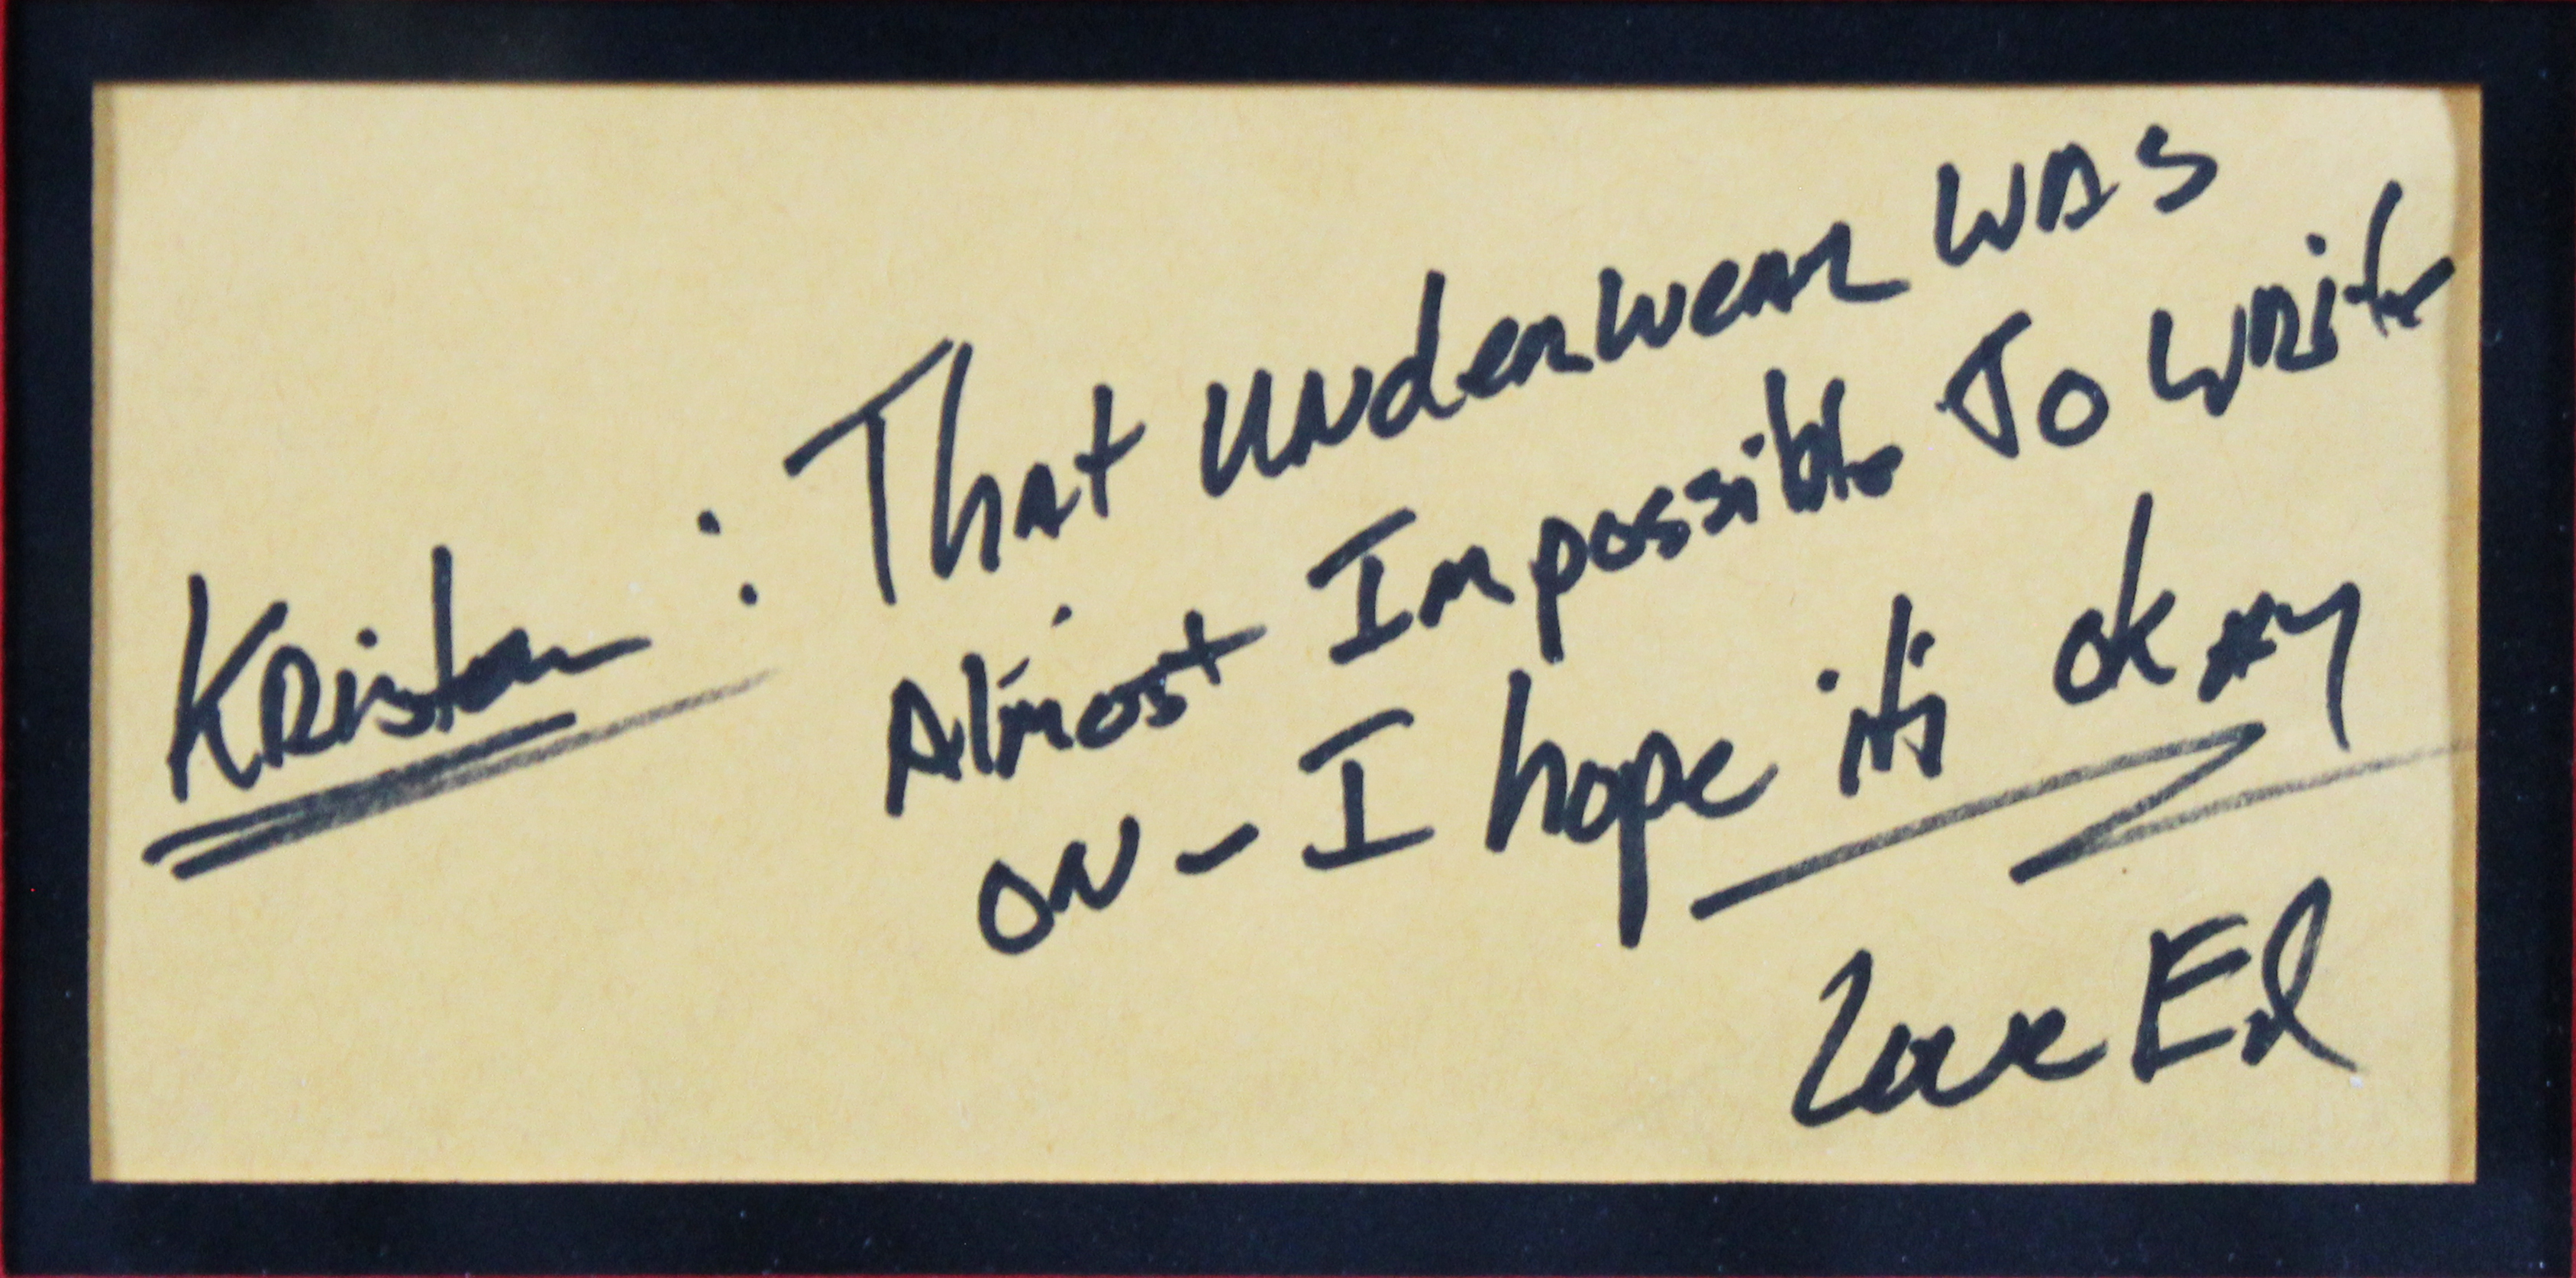 Kristen : That underwear was
Almost Impossible To write
on - I hope it's okay
Love Ed